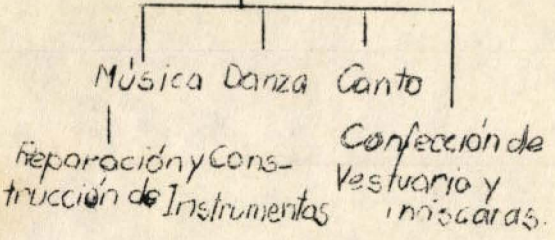 Música Danza Canto
Reparación y Cons-
trucción de Instrumentos
Confección de
Vestuario y
máscaras.